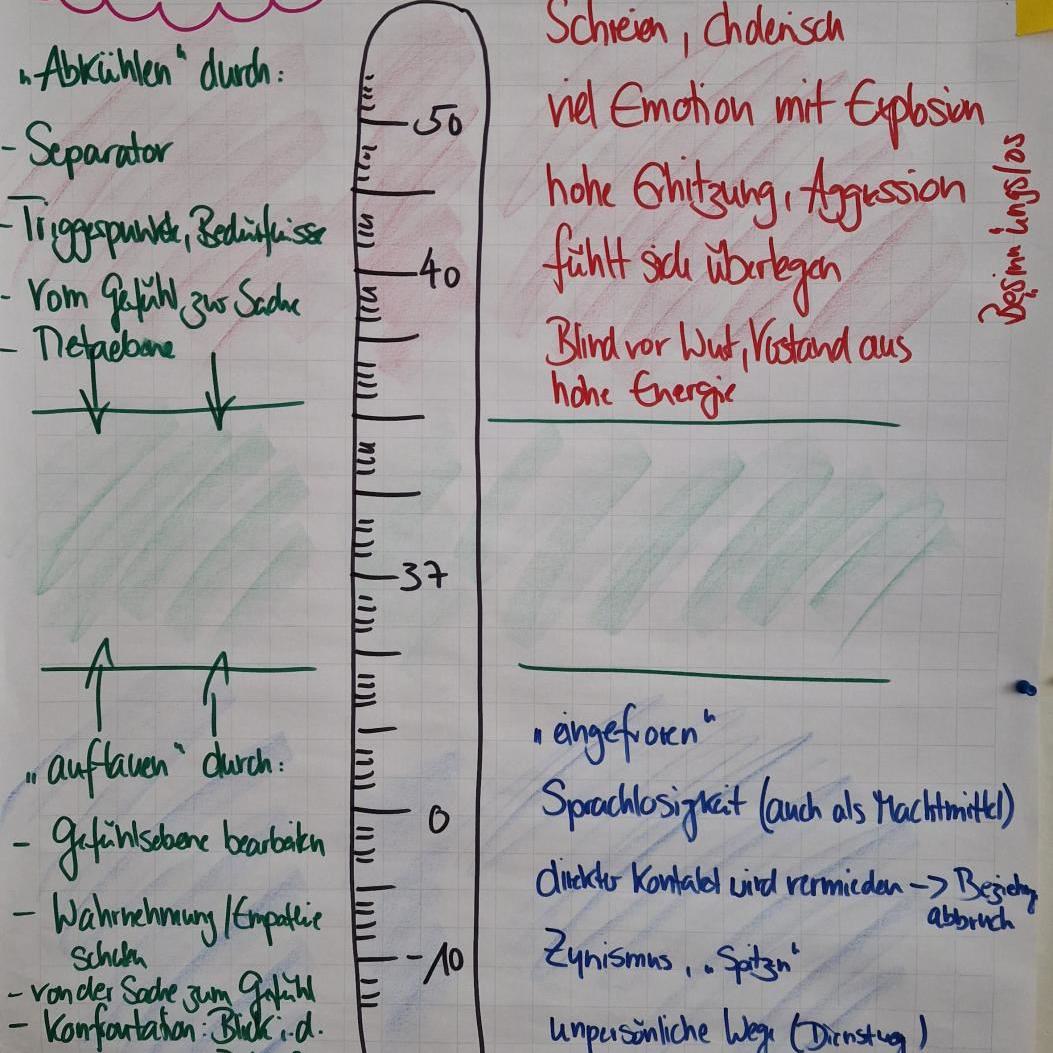 "Abkühlen" durch:
- Separator
- Triggerpunkte, Bedürfnisse
- Vom Gefühl zur Sache
- Metaebene
"auftauen" durch:
- Gefühlsebene bearbeiten
- Wahrnehmung/Empathie
schulen
- von der Sache zum Gefühl
- Konfrontation: Blick i.d.
50
40
37
0
-10
Schreien, cholerisch
viel Emotion mit Explosion
hohe Erhitzung, Aggression
fühlt sich überlegen
Blind vor Wut, Verstand aus
hohe Energie
Besinnungslos
"eingefroren"
Sprachlosigkeit (auch als Machtmittel)
direkter Kontakt wird vermieden -> Beziehungs
abbruch
Zynismus, "Spitzen"
unpersönliche Wege (Dienstweg)